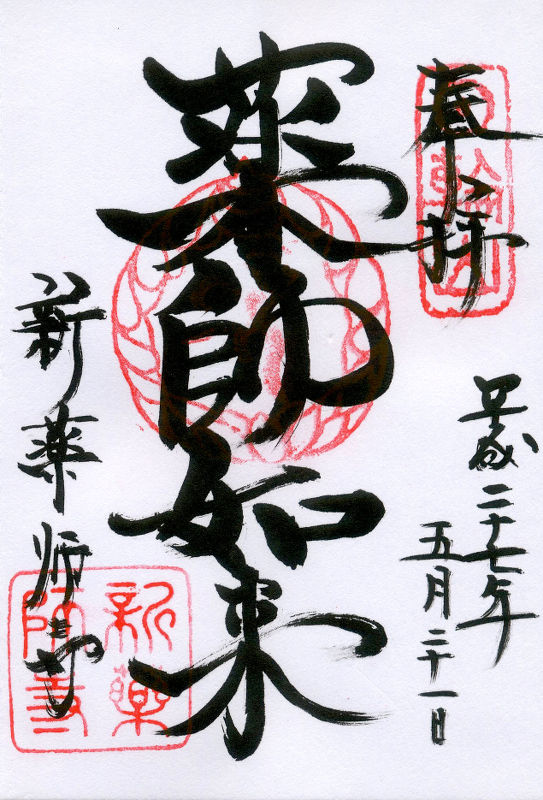 奉拝
平成二十七年
五月二十一日
薬師如来
新薬師寺
新薬
師寺